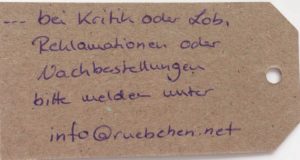 --- bei Kritik oder Lob,
Reklamationen oder
Nachbestellungen
bitte melden unter
info@ruebchen.net